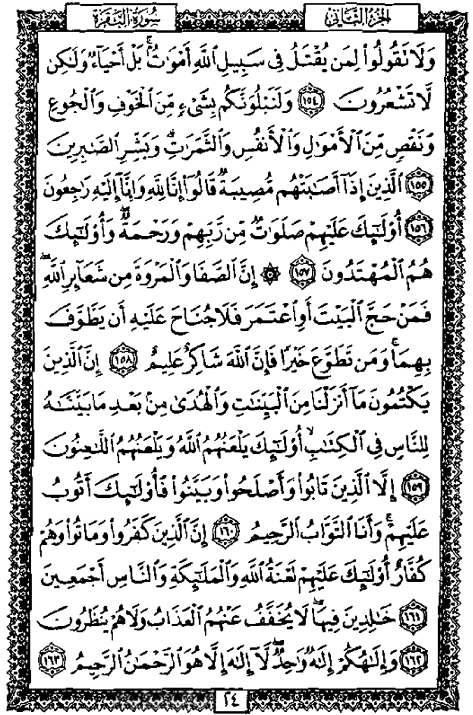 سُورَةُ البَقَرَةِ
الجُزْءُ الثَّانِي
وَلَا تَقُولُوا۟ لِمَن يُقْتَلُ فِى سَبِيلِ ٱللَّهِ أَمْوَٰتٌۢ ۚ بَلْ أَحْيَآءٌ وَلَٰكِن
لَّا تَشْعُرُونَ ١٥٤ وَلَنَبْلُوَنَّكُم بِشَىْءٍ مِّنَ ٱلْخَوْفِ وَٱلْجُوعِ
وَنَقْصٍ مِّنَ ٱلْأَمْوَٰلِ وَٱلْأَنفُسِ وَٱلثَّمَرَٰتِ ۗ وَبَشِّرِ ٱلصَّٰبِرِينَ
١٥٥ ٱلَّذِينَ إِذَآ أَصَٰبَتْهُم مُّصِيبَةٌ قَالُوٓا۟ إِنَّا لِلَّهِ وَإِنَّآ إِلَيْهِ رَٰجِعُونَ
١٥٦ أُو۟لَٰٓئِكَ عَلَيْهِمْ صَلَوَٰتٌ مِّن رَّبِّهِمْ وَرَحْمَةٌ ۖ وَأُو۟لَٰٓئِكَ
هُمُ ٱلْمُهْتَدُونَ ١٥٧ ۞ إِنَّ ٱلصَّفَا وَٱلْمَرْوَةَ مِن شَعَآئِرِ ٱللَّهِ ۖ
فَمَنْ حَجَّ ٱلْبَيْتَ أَوِ ٱعْتَمَرَ فَلَا جُنَاحَ عَلَيْهِ أَن يَطَّوَّفَ
بِهِمَا ۚ وَمَن تَطَوَّعَ خَيْرًا فَإِنَّ ٱللَّهَ شَاكِرٌ عَلِيمٌ ١٥٨ إِنَّ ٱلَّذِينَ
يَكْتُمُونَ مَآ أَنزَلْنَا مِنَ ٱلْبَيِّنَٰتِ وَٱلْهُدَىٰ مِنۢ بَعْدِ مَا بَيَّنَّٰهُ
لِلنَّاسِ فِى ٱلْكِتَٰبِ ۙ أُو۟لَٰٓئِكَ يَلْعَنُهُمُ ٱللَّهُ وَيَلْعَنُهُمُ ٱللَّٰعِنُونَ
١٥٩ إِلَّا ٱلَّذِينَ تَابُوا۟ وَأَصْلَحُوا۟ وَبَيَّنُوا۟ فَأُو۟لَٰٓئِكَ أَتُوبُ
عَلَيْهِمْ ۚ وَأَنَا ٱلتَّوَّابُ ٱلرَّحِيمُ ١٦٠ إِنَّ ٱلَّذِينَ كَفَرُوا۟ وَمَاتُوا۟ وَهُمْ
كُفَّارٌ أُو۟لَٰٓئِكَ عَلَيْهِمْ لَعْنَةُ ٱللَّهِ وَٱلْمَلَٰٓئِكَةِ وَٱلنَّاسِ أَجْمَعِينَ
١٦١ خَٰلِدِينَ فِيهَا ۖ لَا يُخَفَّفُ عَنْهُمُ ٱلْعَذَابُ وَلَا هُمْ يُنظَرُونَ
١٦٢ وَإِلَٰهُكُمْ إِلَٰهٌ وَٰحِدٌ ۖ لَّآ إِلَٰهَ إِلَّا هُوَ ٱلرَّحْمَٰنُ ٱلرَّحِيمُ ١٦٣
٢٤